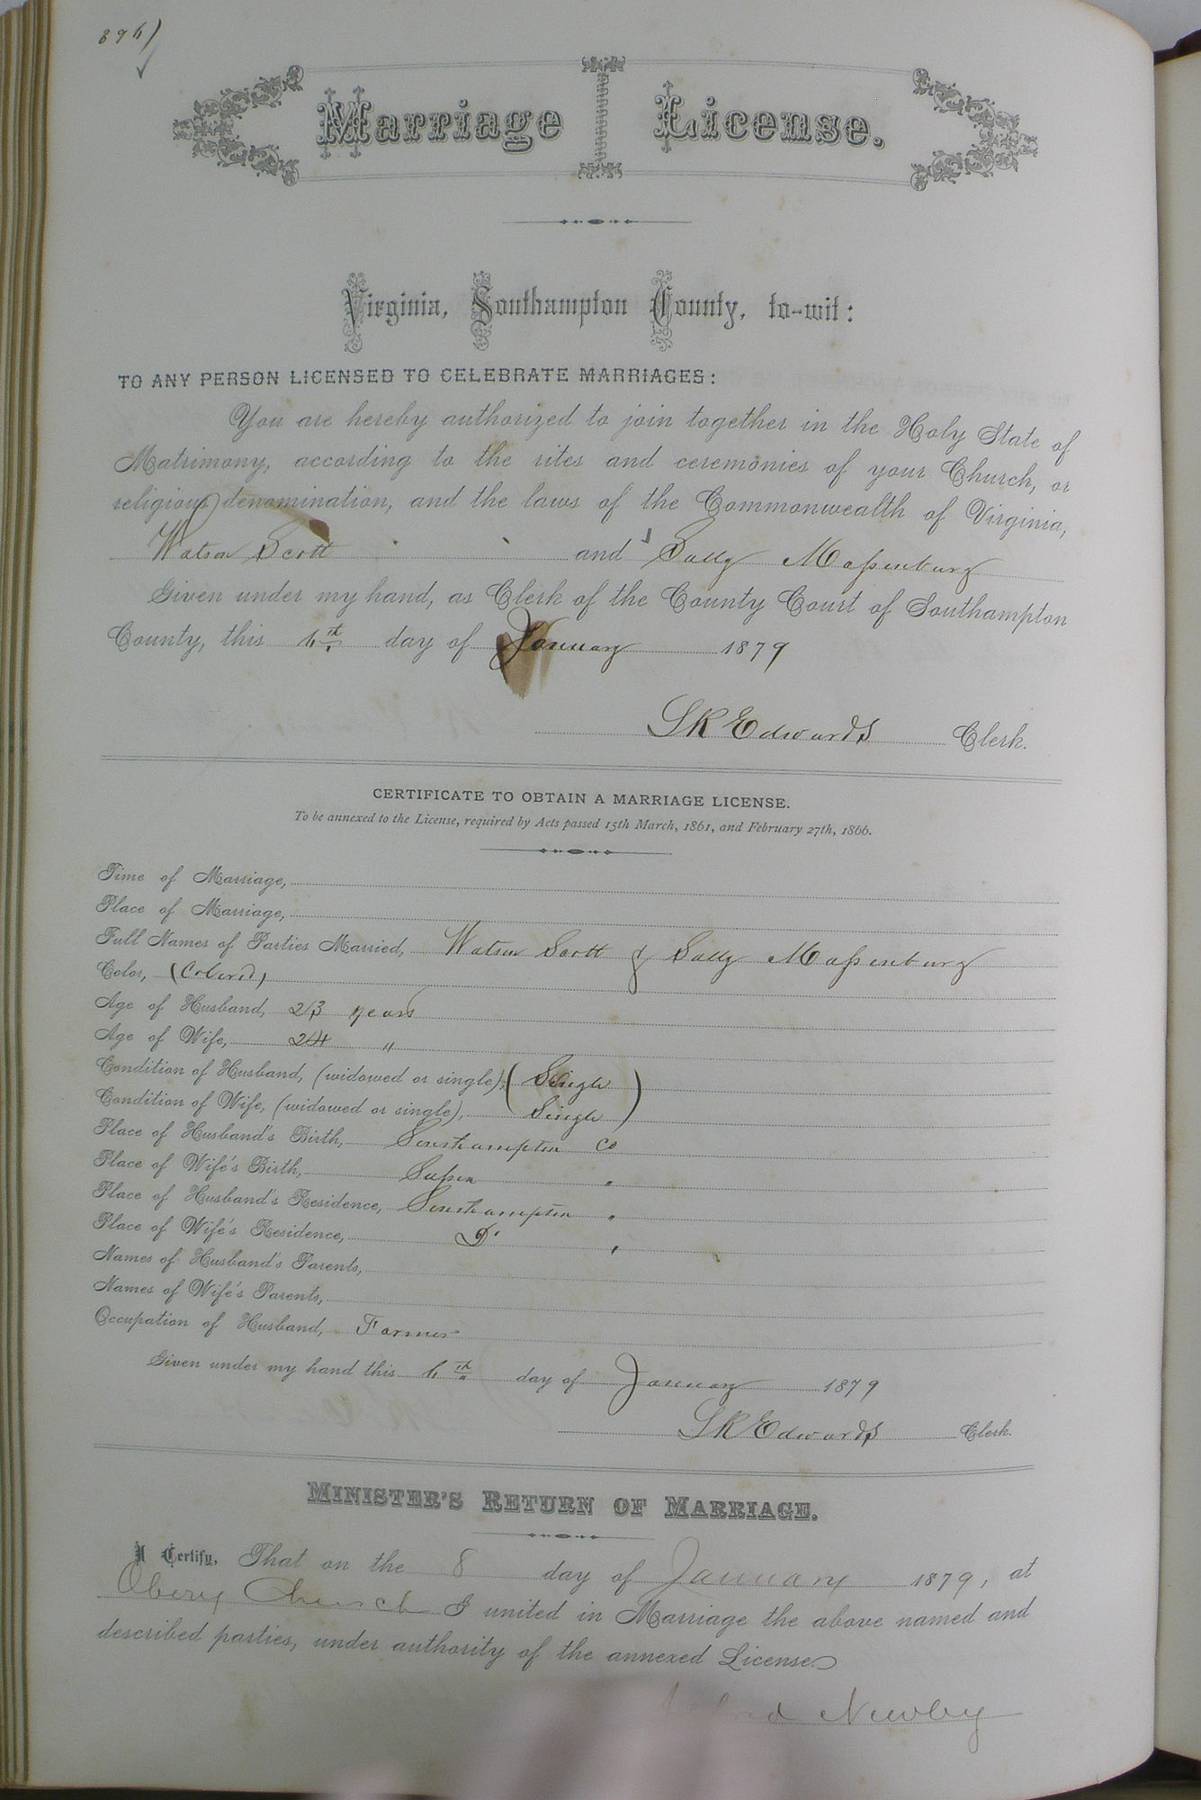 896)
Marriage License.
Virginia, Southampton County, to-wit:
TO ANY PERSON LICENSED TO CELEBRATE MARRIAGES:
You are hereby authorized to join together in the Holy State of
Matrimony, according to the rites and ceremonies of your Church, or
religious denomination, and the laws of the Commonwealth of Virginia,
Watson Scott and Sally Massenburg
Given under my hand, as Clerk of the County Court of Southampton
County, this 6th day of January 1879
L R Edwards Clerk.
CERTIFICATE TO OBTAIN A MARRIAGE LICENSE.
To be annexed to the License, required by Acts passed 15th March, 1861, and February 27th, 1866.
Time of Marriage,
Place of Marriage,
Full Names of Parties Married, Watson Scott & Sally Massenburg
Color, (Colored)
Age of Husband, 23 years
Age of Wife, 24 "
Condition of Husband, (widowed or single), (Single)
Condition of Wife, (widowed or single), Single
Place of Husband's Birth, Southampton Co
Place of Wife's Birth, Sussex "
Place of Husband's Residence, Southampton "
Place of Wife's Residence, Do "
Names of Husband's Parents,
Names of Wife's Parents,
Occupation of Husband, Farmer
Given under my hand this 6th day of January 1879
L R Edwards Clerk.
MINISTER'S RETURN OF MARRIAGE.
I Certify, That on the 8 day of January 1879, at
Obery Church I united in Marriage the above named and
described parties, under authority of the annexed License.
Newby